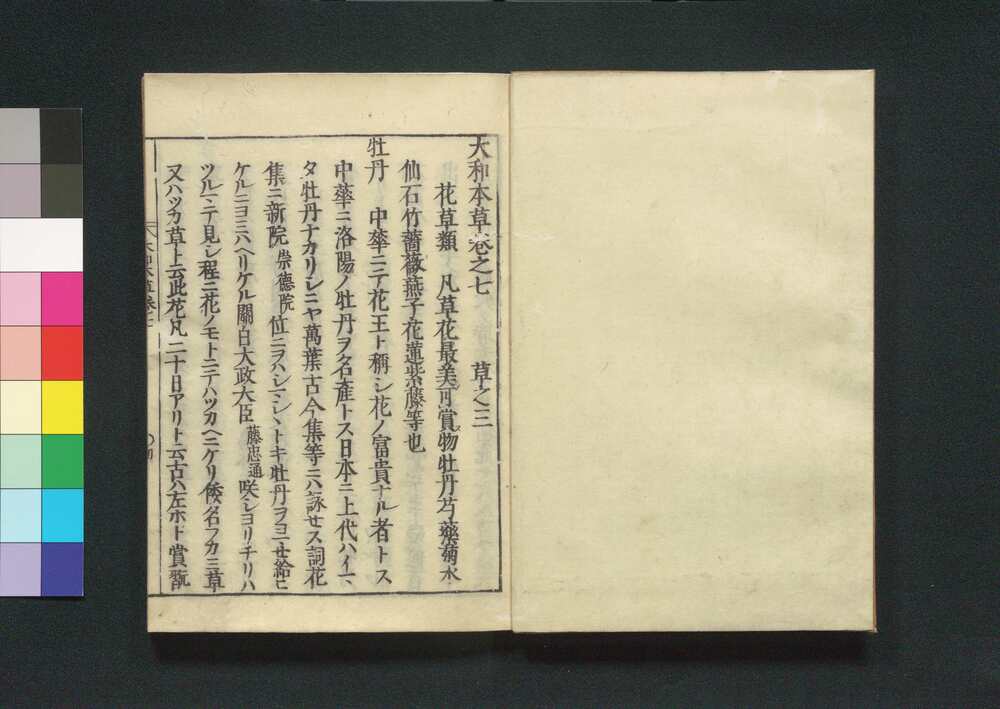 大和本草巻之七　　草之三
花草類　凡草花最美可賞物牡丹芍藥菊水
仙石竹薔薇燕子花蓮紫藤等也
牡丹　中華ニテ花王ト稱シ花ノ富貴ナル者トス
中華ニ洛陽ノ牡丹ヲ名産トス日本ニ上代ハイマ
タ牡丹ナカリシニヤ萬葉古今集等ニハ詠セス詞花
集ニ新院崇德院位ニヲハシマシヽトキ牡丹ヲヨマセ給ヒ
ケルニヨミハヘリケル關白大政大臣藤忠通咲シヨリチリハ
ツルマテ見シ程ニ花ノモトニテハツカヘニケリ倭名フカミ草
又ハツカ草ト云此花凡二十日アリト云古ハ左ホト賞翫